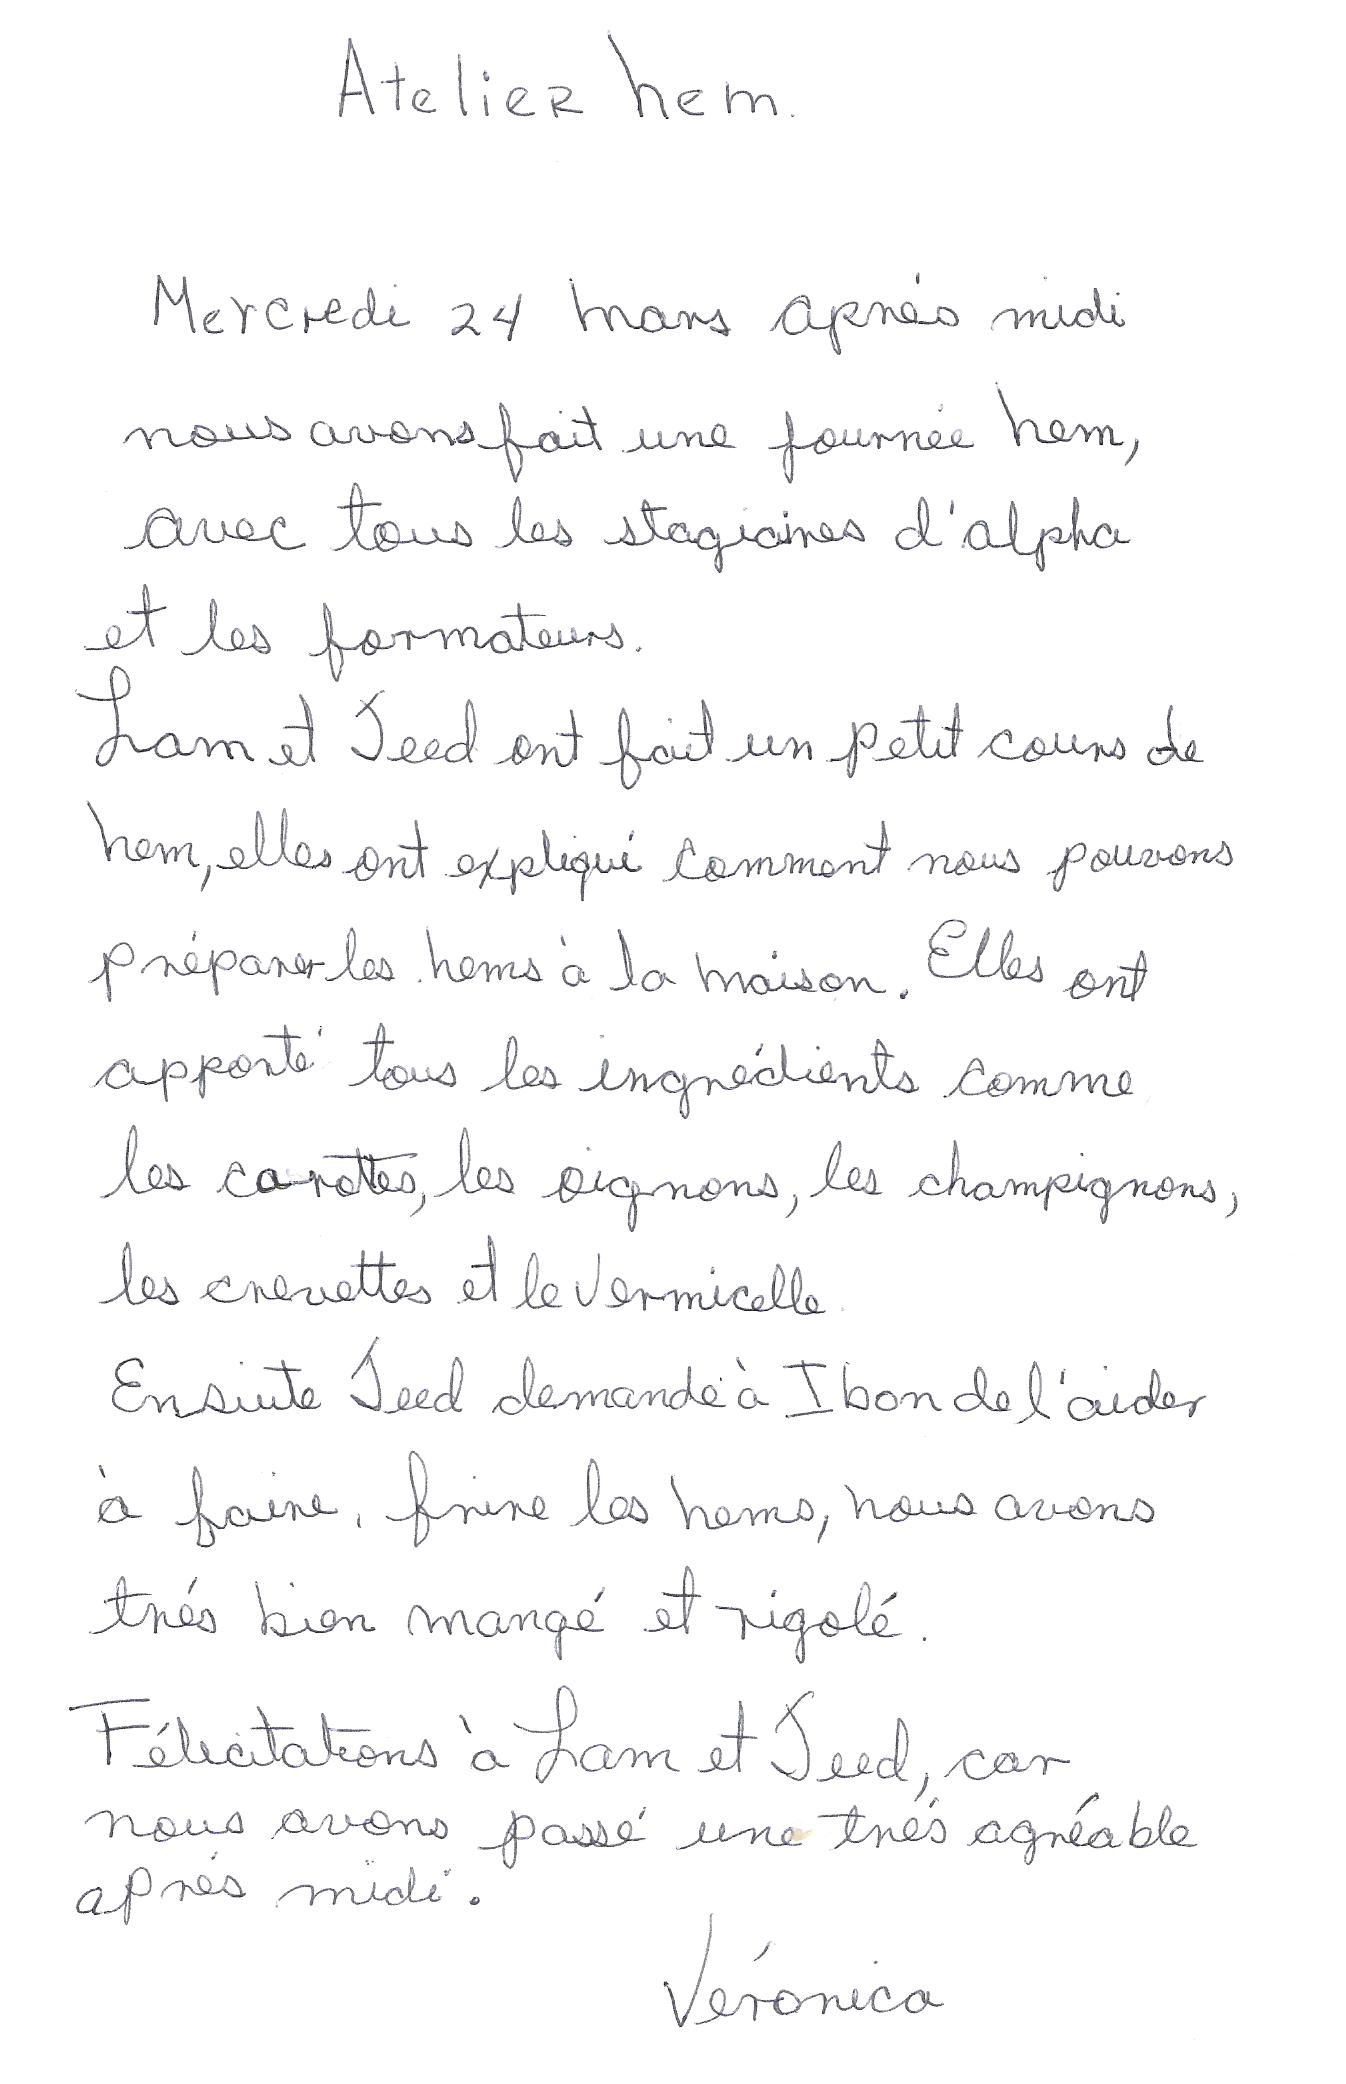 Atelier nem.
Mercredi 24 mars aprés midi
nous avons fait une journée nem,
avec tous les stagiaires d'alpha
et les formateurs.
Lam et Jeed ont fait un petit cours de
nem, elles ont expliqué comment nous pouvons
préparer les nems à la maison. Elles ont
apporté tous les ingrédients comme
les carottes, les oignons, les champignons,
les crevettes et le vermicelle.
Ensiute Jeed demandé à Ibon de l'aider
à faire, frire les nems, nous avons
trés bien mangé et rigolé.
Félicitations à Lam et Jeed, car
nous avons passé une trés agréable
aprés midi.
Véronica